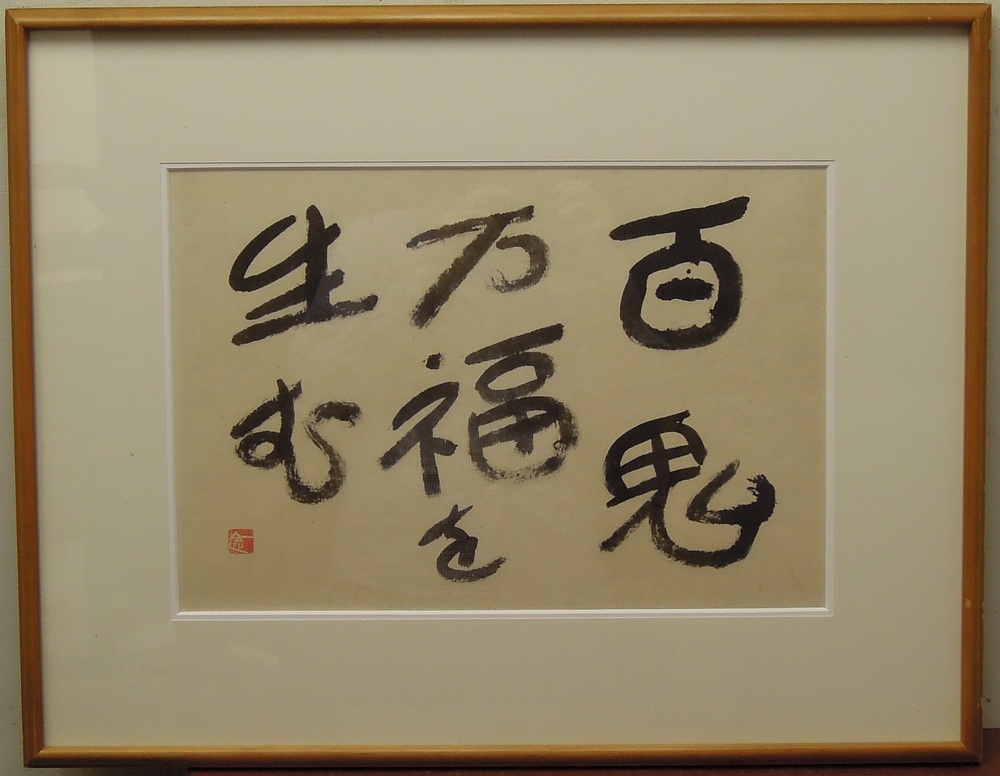 百鬼
万福を
生む